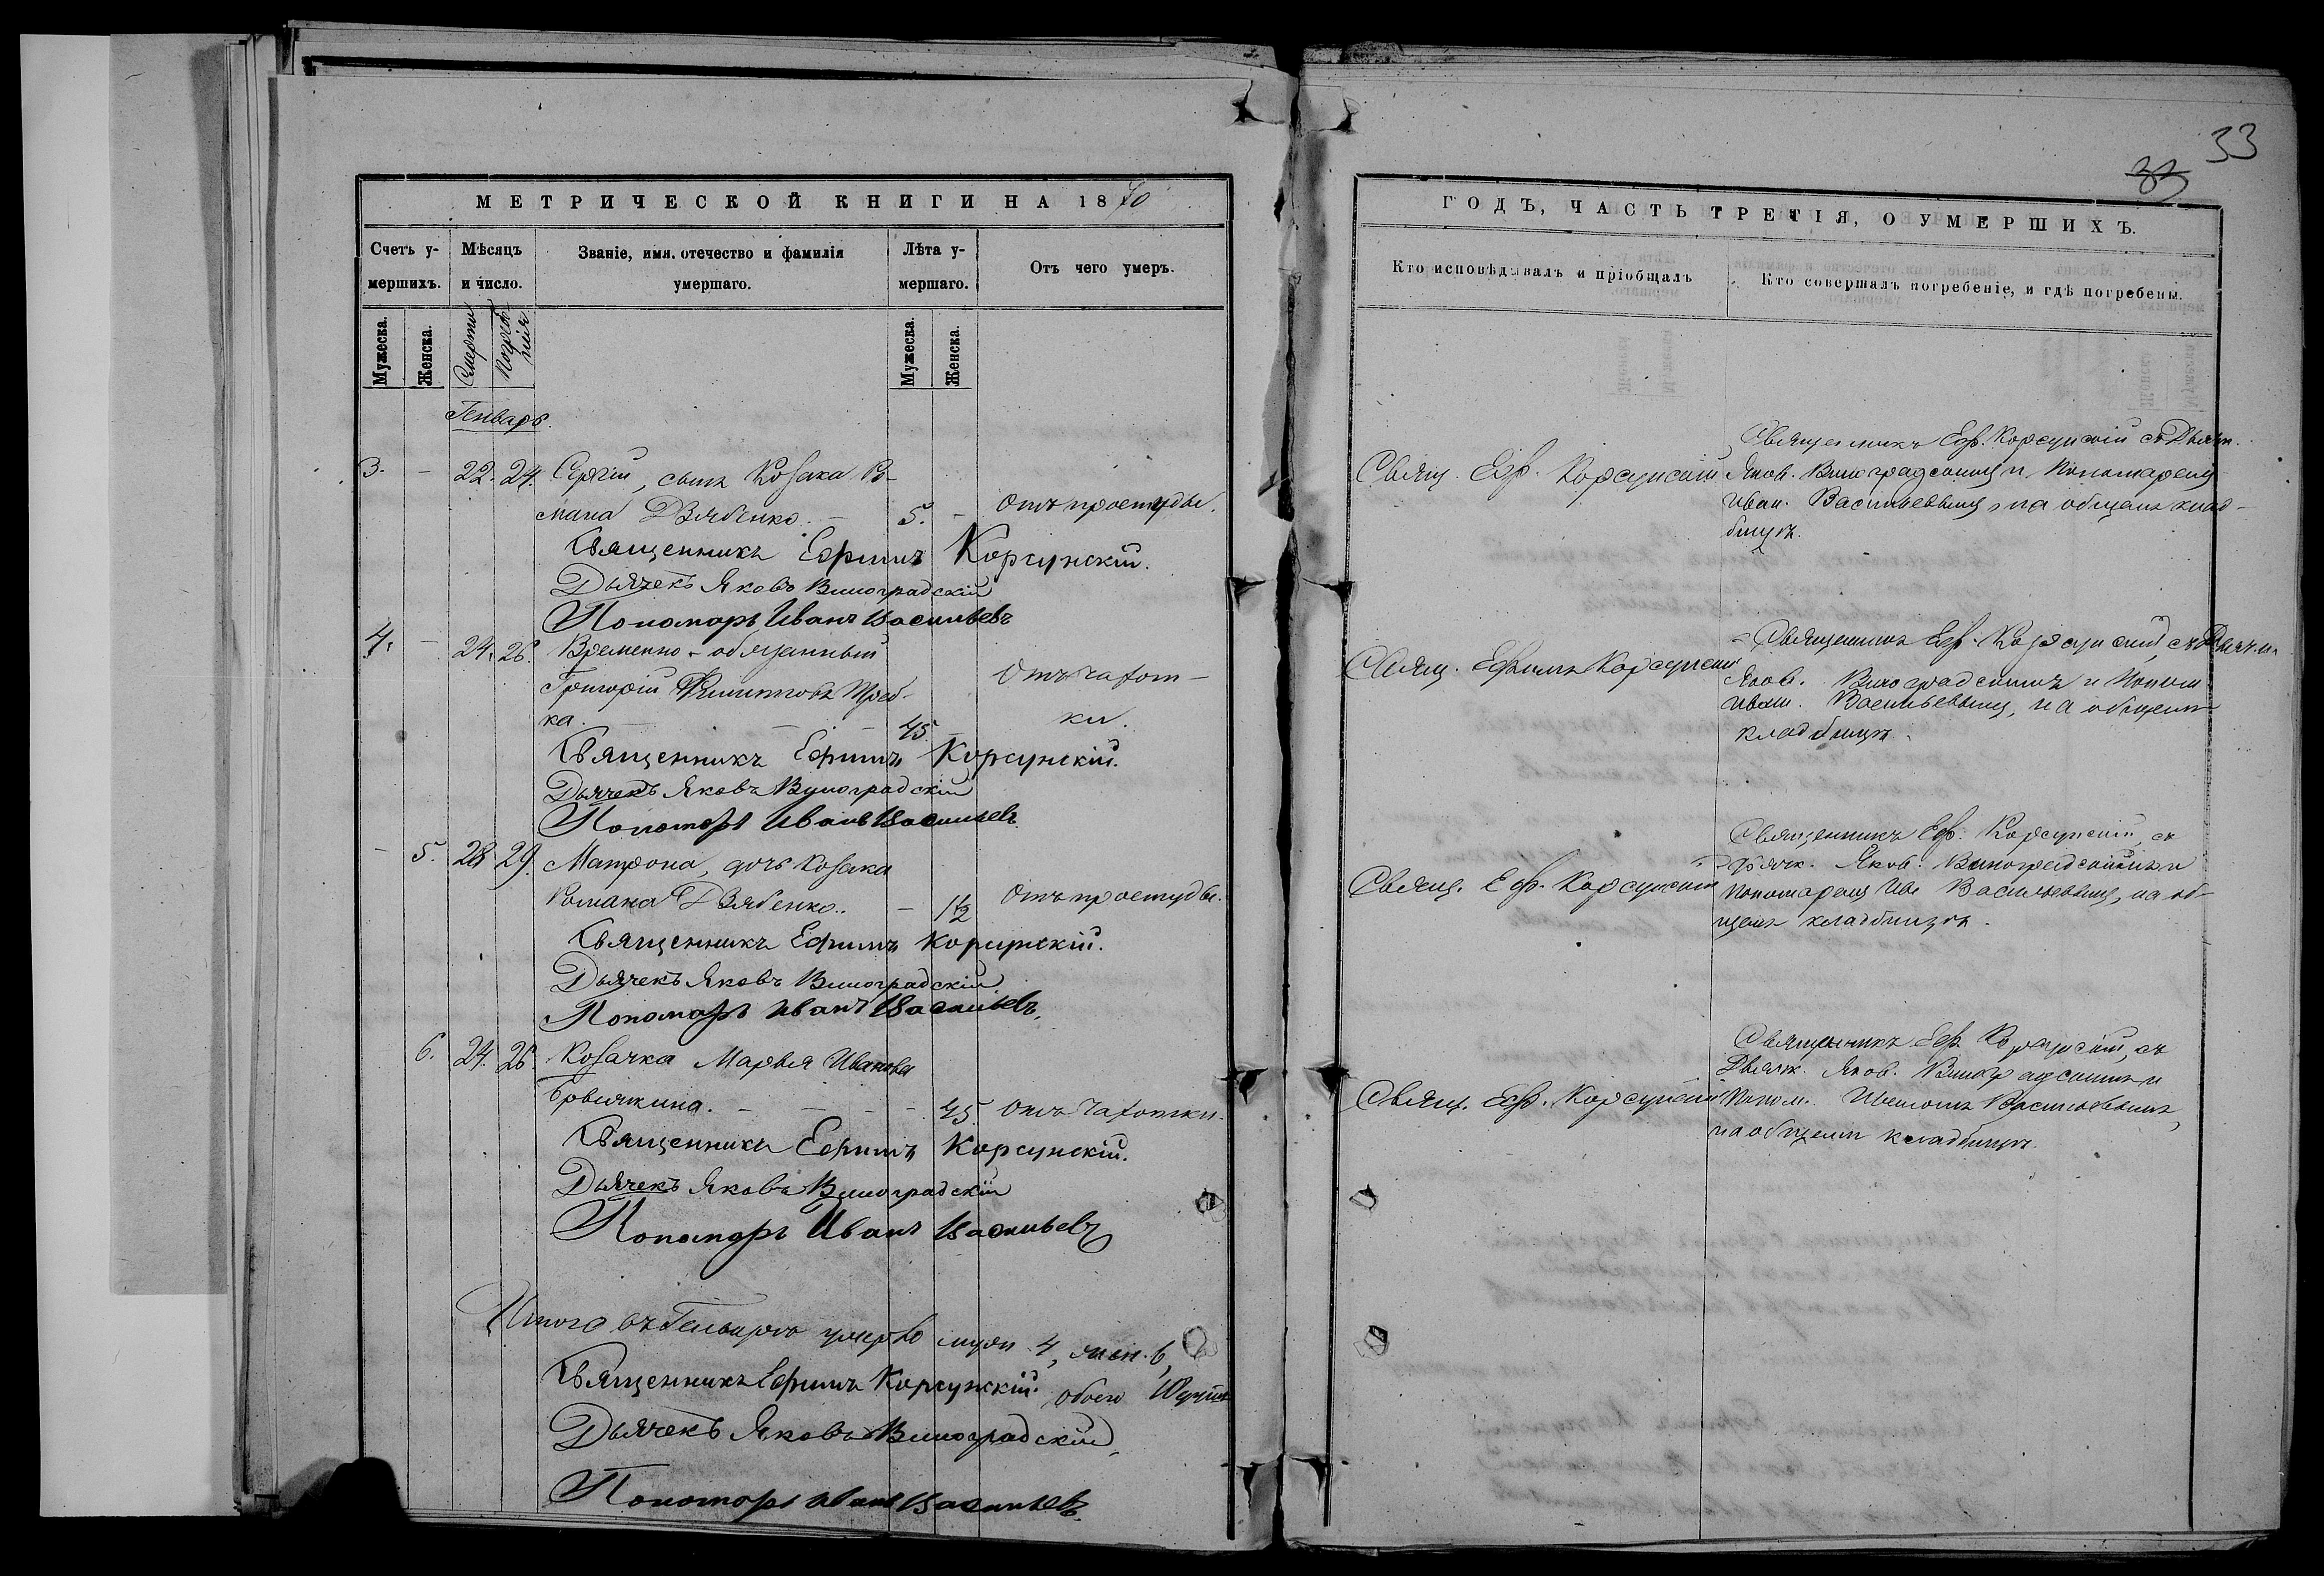 МЕТРИЧЕСКОЙ КНИГИ НА 1870
Счетъ у-
мершихъ.
Мѣсяцъ
и число.
Званіе, имя, отечество и фамилія
умершаго.
Лѣта у-
мершаго.
Отъ чего умеръ.
Мужеска.
Женска.
Смерти
Погребе
нія
Мужеска.
Женска.
Генварь.
3. - 22. 24. Сергій, сынъ Козака Ро-
мана Дзябенко. - 5. - Отъ простуды.
Священникъ Ефимъ Корсунскій.
Дьячекъ Яковъ Виноградскій
Пономарь Иванъ Васильевъ
4. - 24. 26. Временно-обязанный
Григорій Филиповъ
ка. - - 45. - Отъ чахот-
ки.
Священникъ Ефимъ Корсунскій.
Дьячекъ Яковъ Виноградскій
Пономарь Иванъ Васильевъ
- 5. 28 29. Матрона, дочь Козака
Романа Дзябенко.. - 1½ Отъ простуды.
Священникъ Ефимъ Корсунскій.
Дьячекъ Яковъ Виноградскій
Пономарь Иванъ Васильевъ.
6. 24. 26. Козачка Марья Иванова
- - - - 45. Отъ Чахотки.
Священникъ Ефимъ Корсунскій.
Дьячекъ Яковъ Виноградскій
Пономарь Иванъ Васильевъ
Итого въ Генваре умерло муж. 4, жен. 6,
обоего 10 душъ
Священникъ Ефимъ Корсунскій.
Дьячекъ Яковъ Виноградскій,
Пономарь Иванъ Васильевъ.
33
ГОДЪ, ЧАСТЬ ТРЕТІЯ, О УМЕРШИХЪ.
Кто исповѣдывалъ и пріобщалъ
Кто совершалъ погребеніе, и гдѣ погребены.
Свящ. Еф. Корсунскій
Священникъ Еф. Корсунскій съ Дьячк.
Яков. Виноградскимъ и Пономаремъ
Иван. Васильевымъ, на общемъ клад-
бищѣ.
Свящ. Ефимъ Корсунскій
Священникъ Еф. Корсунскій, съ Дьячк.
Яков. Виноградскимъ и Поном
Иван. Васильевымъ, на общемъ
кладбищѣ.
Свящ. Еф. Корсунскій
Священникъ Еф. Корсунскій, съ
Дьячк. Яков. Виноградскимъ и
пономаремъ Ив. Васильевымъ, на об-
щемъ кладбищѣ.
Свящ. Еф. Корсунскій
Священникъ Еф. Корсунскій, съ
Дьячк. Яков. Виноградскимъ и
Поном. Иваномъ Васильевымъ,
на общемъ кладбищѣ.